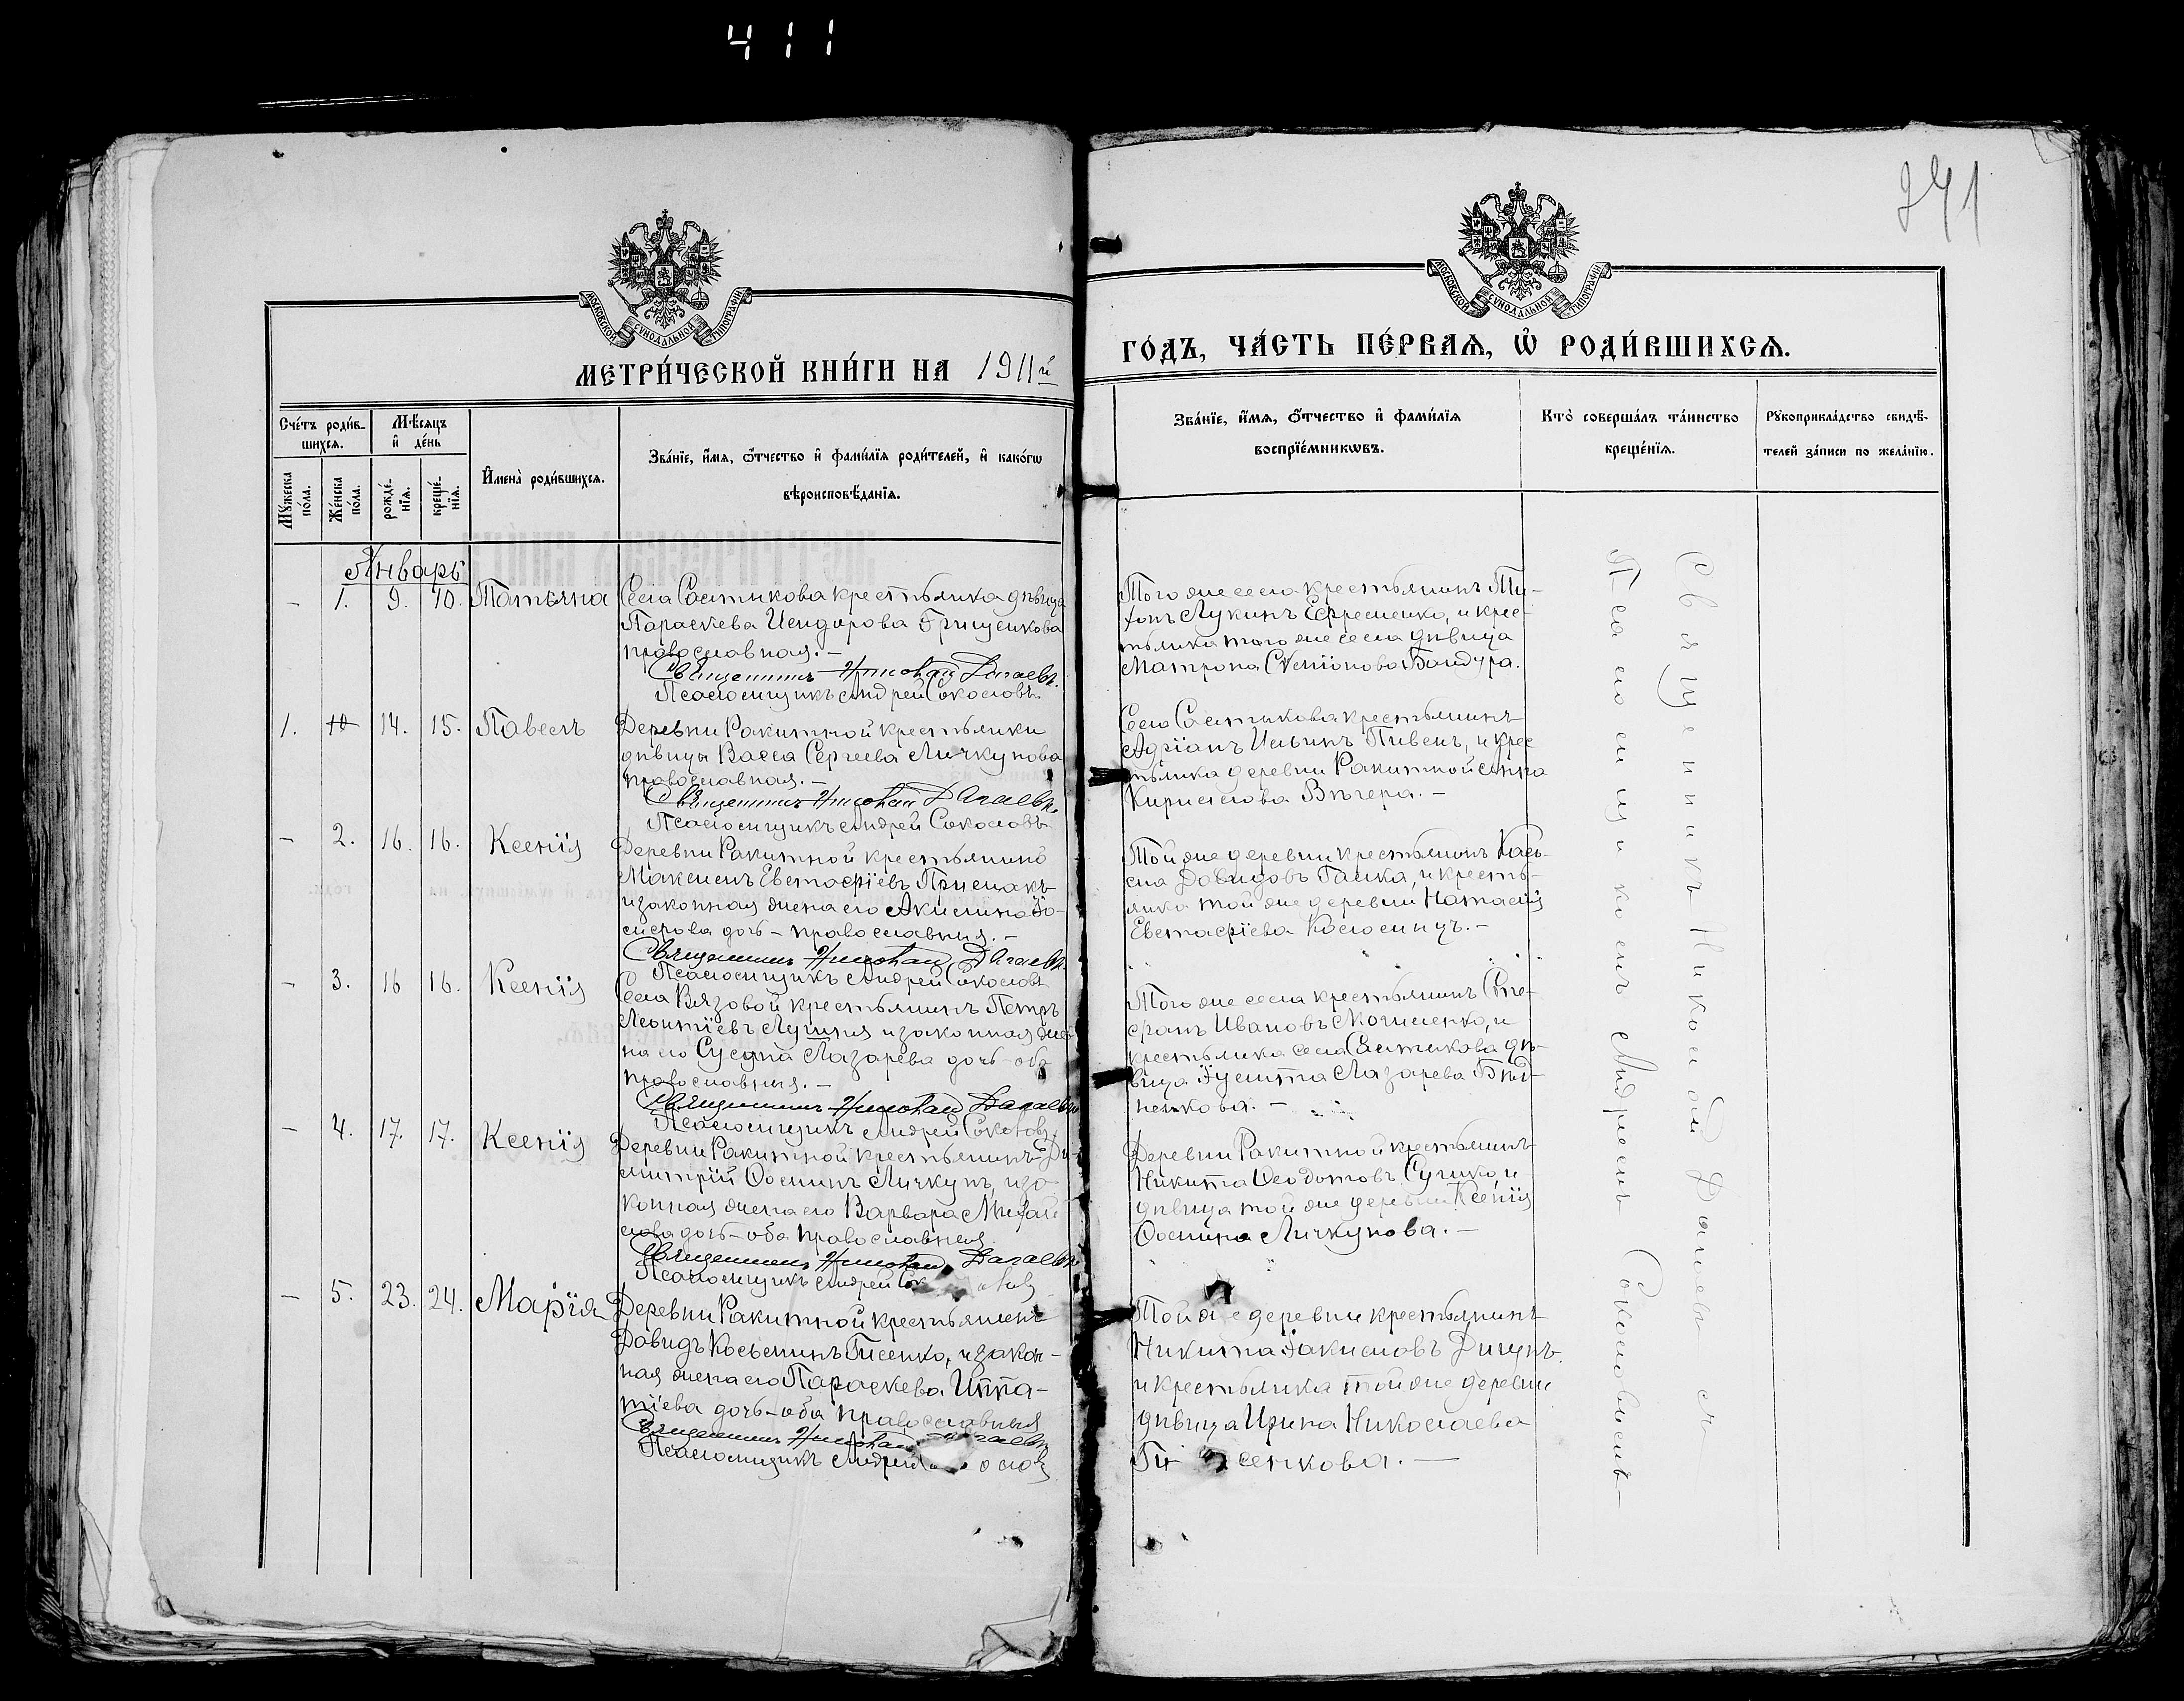 411
241
МОСКОВСКОЙ СУНОДАЛЬНОЙ ТИПОГРАФІИ
МОСКОВСКОЙ СУНОДАЛЬНОЙ ТИПОГРАФІИ
МЕТРИ́ЧЕСКОЙ КНИ́ГИ НА 1911й
ГО́ДЪ, ЧА́СТЬ ПЕ́РВАЯ, Ѡ РОДИ́ВШИХСЯ.
Сче́тъ роди́в-
шихся.
Мꙋжеска
по́ла.
Же́нска
по́ла.
Мѣ́сяцъ
и́ де́нь
рожде́-
нїя.
креще́-
нїя.
И҆мена̀ роди́вшихся.
Зва́нїе, и҆́мя, ѻ҆́тчество и҆ фами́лїя роди́телей, и҆ како́гѡ
вѣроисповѣ́данїя.
Зва́нїе, и҆́мя, ѻ҆́тчество и҆ фами́лїя
воспрїе́мникѡвъ.
Кто̀ соверша́лъ та́инство
креще́нїя.
Рꙋкоприкла́дство свидѣ́-
телей за́писи по жела́нїю.
Январь
- 1. 9. 10. Татьяна
Села Састикова крестьянка дѣвица
Параскева Исидорова Грищенкова
православная. -
Священникъ Николай Данаевъ.
Псаломщикъ Андрей Соколовъ
Того же села крестьянинъ Ти-
хонъ Лукинъ Ефременко, и крес-
тьянка того же села дѣвица
Матрона Стеніонова Бандура.
1. 10 14. 15. Павелъ
Деревни Ракитной крестьянки
дѣвицы Васса Сергеева Личкунова
православная. -
Священникъ Николай Данаевъ.
Псаломщикъ Андрей Соколовъ
Села Састикова крестьянинъ
Адріанъ Ильинъ Пивень, и крес
тьянка деревни Ракитной Анна
Кириллова Вѣчера. -
- 2. 16. 16. Ксенія
Деревни Ракитной крестьянинъ
Максимъ Евстафіевъ Примакъ
и законная жена его Акилина Іо-
сифова дочь - православныя. -
Священникъ Николай Данаевъ.
Псаломщикъ Андрей Соколовъ
Той же деревни крестьянинъ Кась-
яна Давидовъ Галка, и кресть-
янка той же деревни Наталія
Евстафіева Коломицъ. -
- 3. 16 16. Ксенія
Села Вязовой крестьянинъ Петръ
Леонтіевъ Лушня и законная же-
на его Сусанна Лазарева дочь - оба
православныя. -
Священникъ Николай Данаевъ
Псаломщикъ Андрей Соколовъ
Того же села крестьянинъ Сте-
фанъ Ивановъ Могиленко, и
крестьянка села Састикова дѣ-
вица Іулитта Лазарева
ненкова. -
- 4. 17. 17. Ксенія
Деревни Ракитной крестьянинъ Ди-
митрій Ѳоминъ Личкунъ, и за-
конная жена его Варвара Михай
лова дочь - оба православныя.
Священникъ Николай Данаевъ
Псаломщикъ Андрей Соколовъ
Деревни Ракитной крестьянинъ
Никита Ѳеодотовъ Сушко, и
дѣвица той же деревни Ксенія
Ѳомина Личкунова. -
- 5. 23. 24. Марія
Деревни Ракитной крестьянинъ
Давидъ Косьминъ Гисенко, и закон-
ная жена его Параскева Ипа-
тіева дочь - оба православныя
Священникъ Николай Данаевъ
Псаломщикъ Андрей
Той же деревни крестьянинъ
Никита Іакимовъ Дигунъ.
и крестьянка той же деревни
дѣвица Ирина Николаева
Гисенкова. -
Священникъ Николай Данаевъ съ
Псаломщикомъ Андреемъ Соколовымъ -